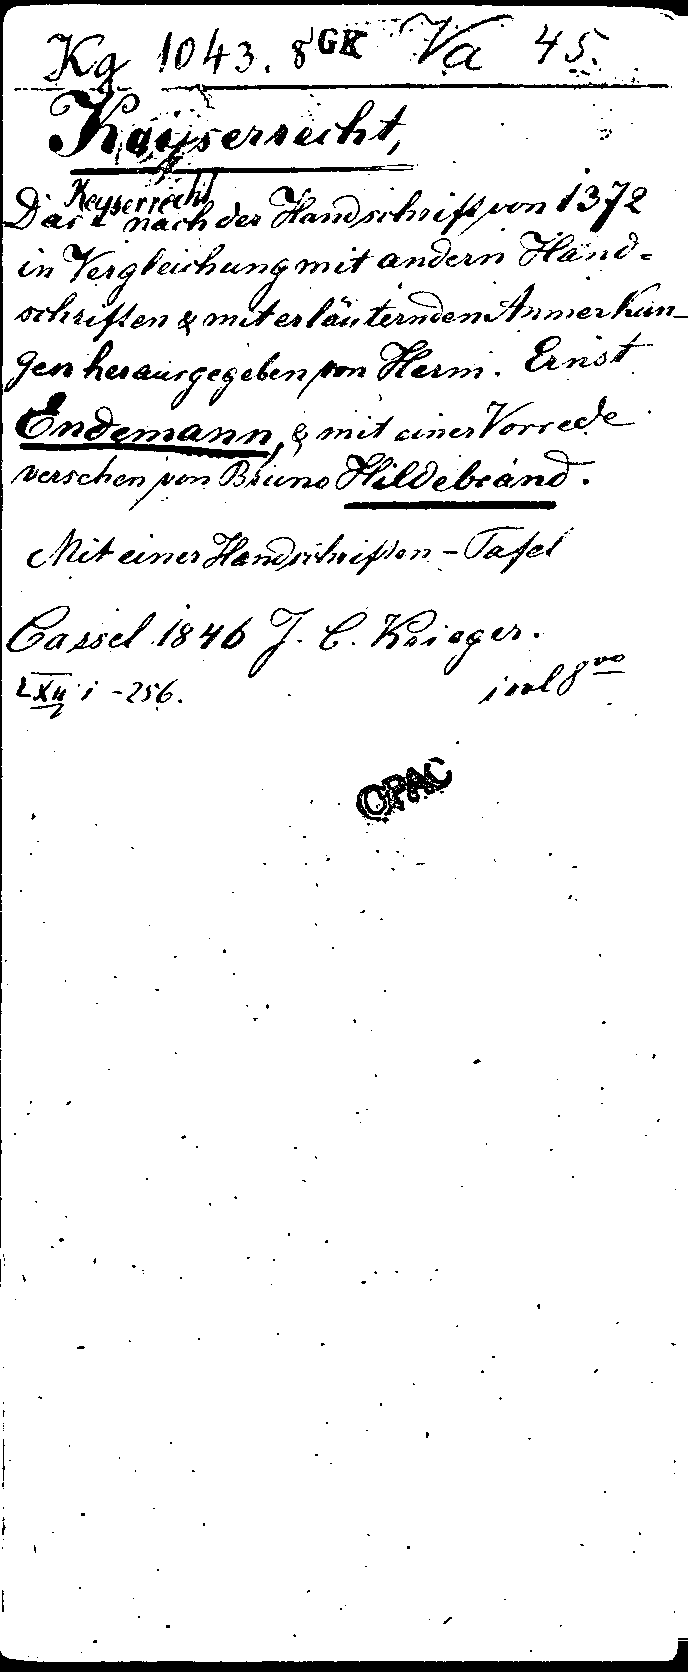 Kg 1043. 8° GK Va 45.
Kayserrecht,
Keyserrecht
Das " nach der Handschrift von 1372
in Vergleichung mit andern Hand-
schriften & mit erläuternden Anmerkun-
gen herausgegeben von Herm. Ernst
Endemann, & mit einer Vorrede
versehen von Bruno Hildebrand.
Mit einer Handschriften-Tafel
Cassel 1846 J. C. Krieger.
LXII 1-256. 1 vol 8vo
OPAC